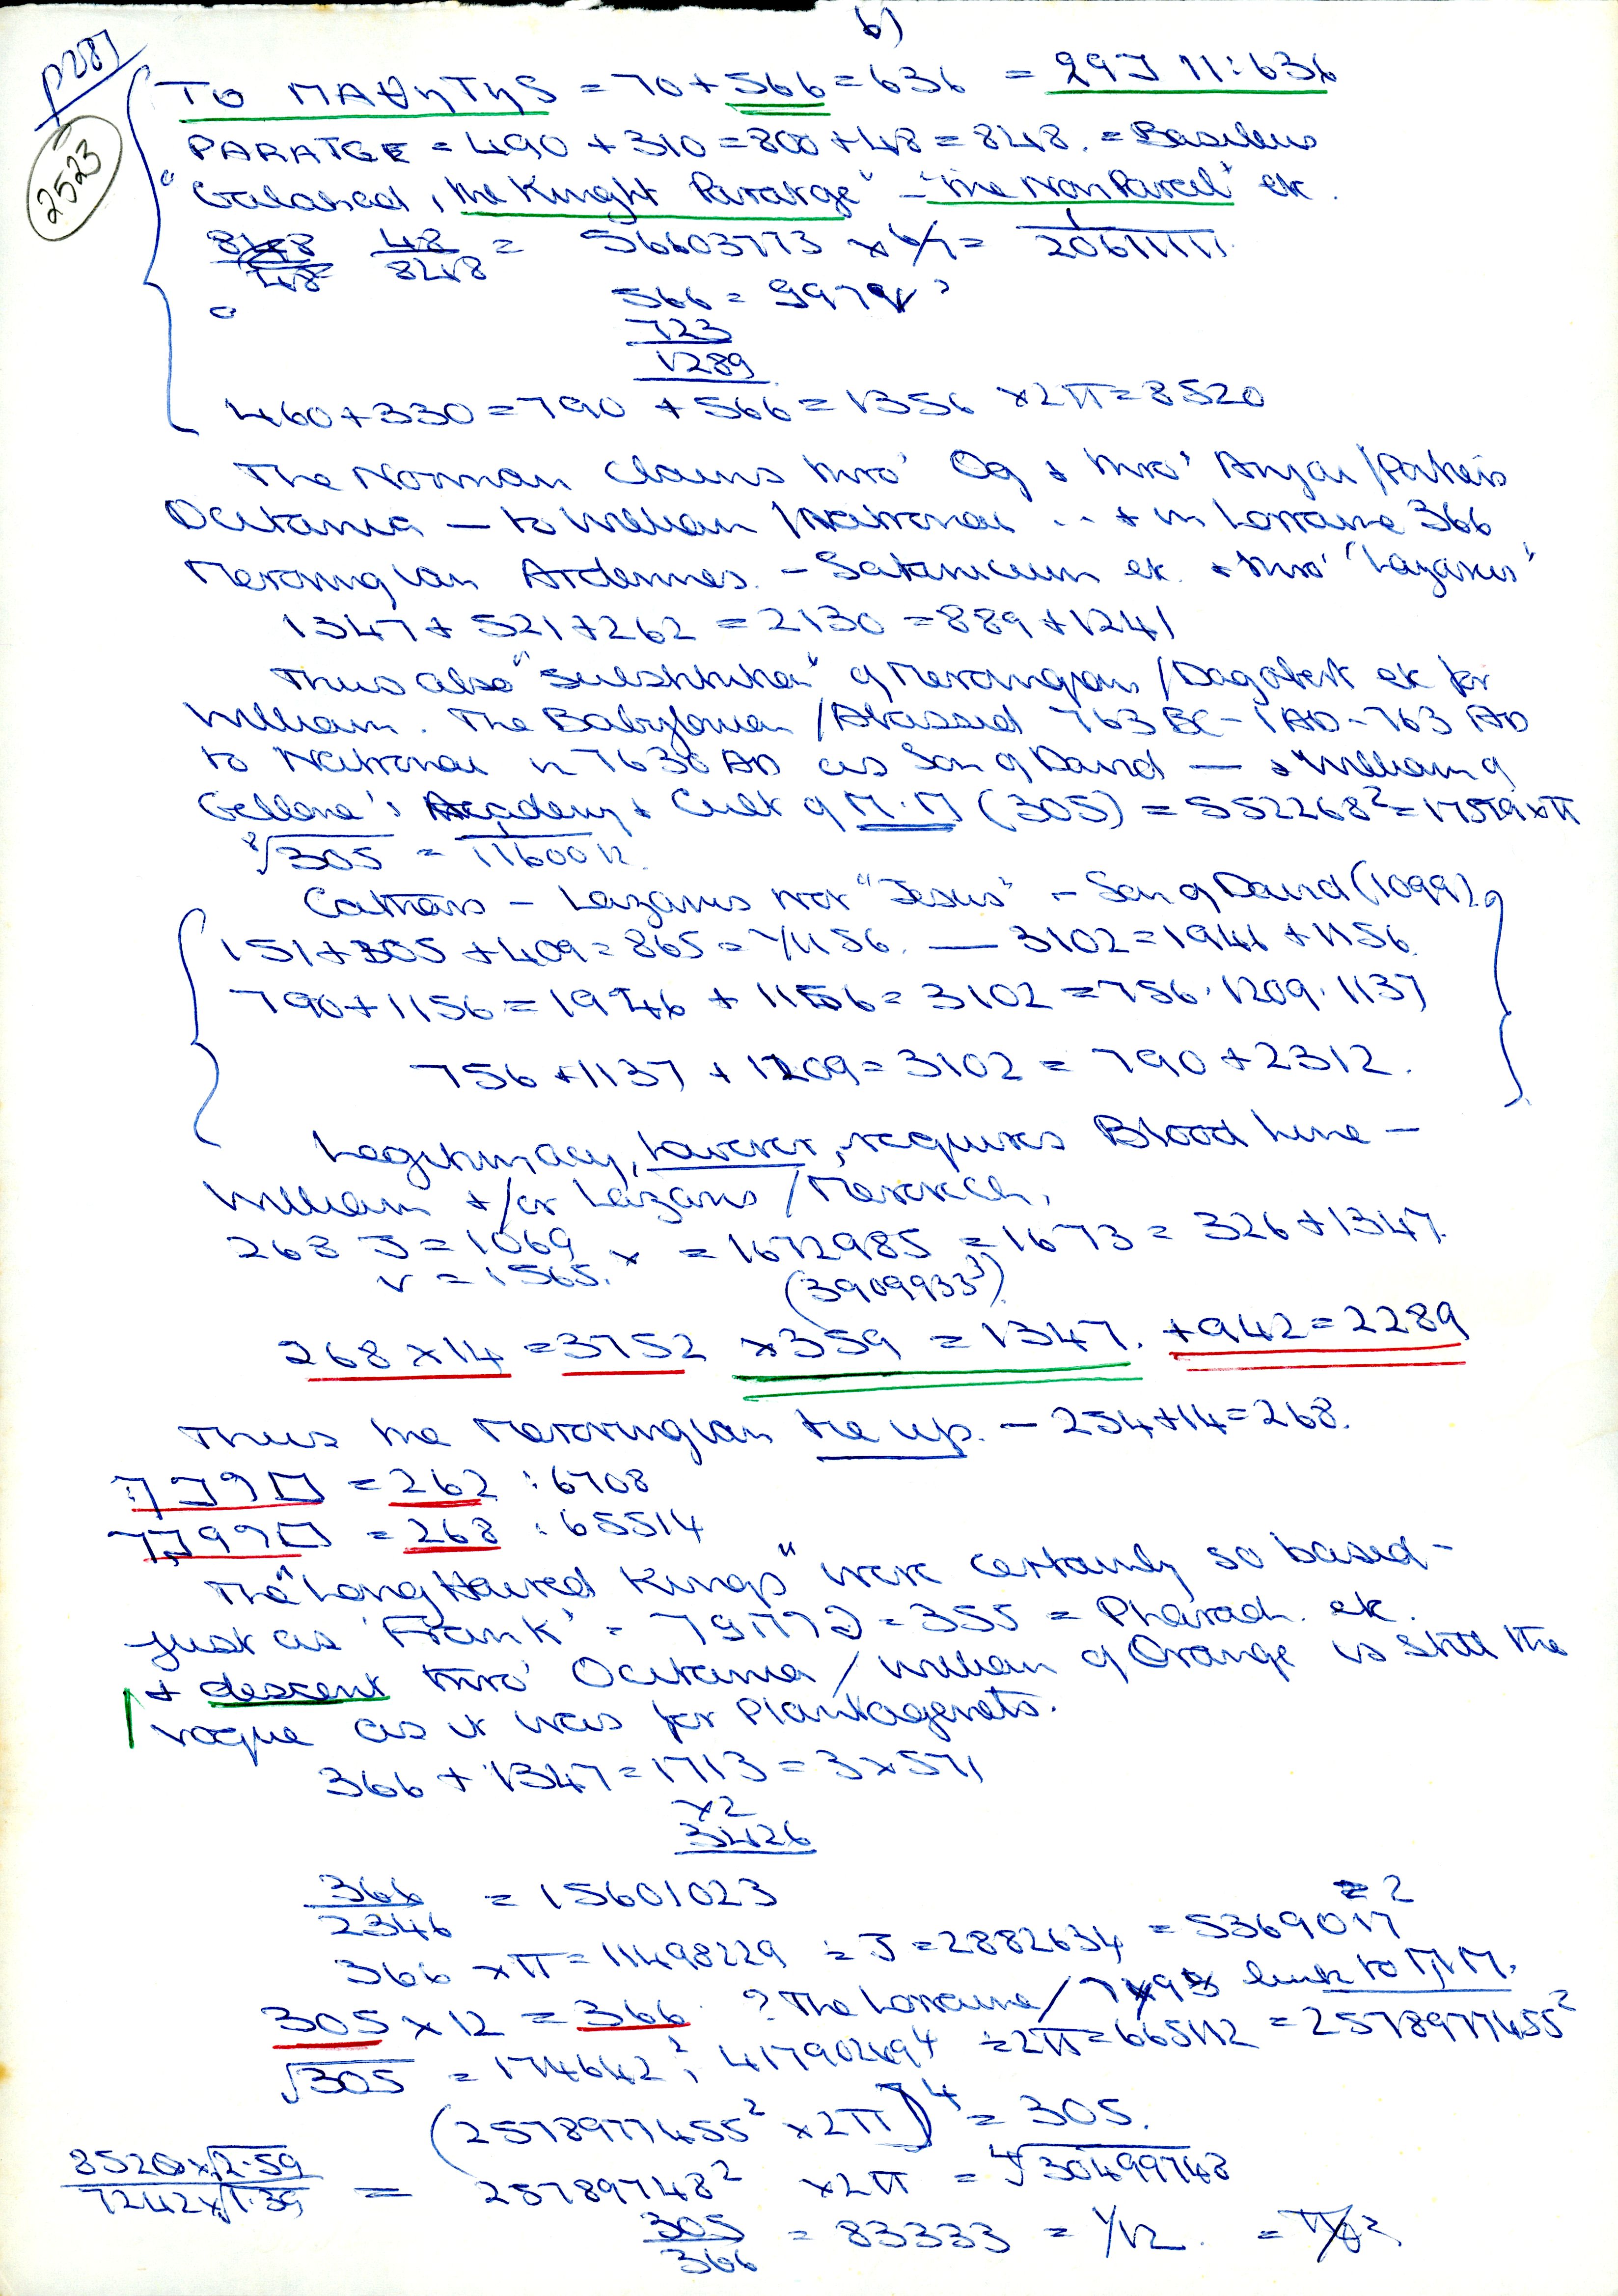 b)
p287
2523
TO MAΘηTηS = 70 + 566 = 636 = 29J 11:636
PARATGE = 490 + 310 = 800 + 48 = 848. = Basileus
"Galahad, the Knight Paratge" - "the Non Pareil" etc.
48/848 = 56603773 x 6/7 = 1/20611111
566 = 9979
723
1289
460 + 330 = 790 + 566 = 1356 x 2π = 8520
The Norman claims thro' Og & thro' Anjou / Poitiers
Occitania — to William / Natronai .. + in Lorraine 366
Merovingian Ardennes. - Satanicum etc. & thro' "Lazarus"
1347 + 521 + 262 = 2130 = 889 + 1241
Thus also "substitution" of Merovingian / Dagobert etc for
William. The Babylonian / Abassid 763 BC - 1 AD - 763 AD
to Natronai in 7630 AD as Son of David — & William of
Gellone's Academy & Cult of M.M (305) = 552268² = 17579 x π
⁸√305 = 1160012.
Cathars - Lazarus not "Jesus" - Son of David (1099).
151 + 305 + 409 = 865 = 1/1156. — 3102 = 1946 + 1156.
790 + 1156 = 1946 + 1156 = 3102 = 756. 1209. 1137
756 + 1137 + 1209 = 3102 = 790 + 2312.
Legitimacy, however, requires Blood Line -
William +/or Lazarus /
268 J = 1069 x = 1672985 = 1673 = 326 + 1347.
v = 1565. (3909933³)
268 x 14 = 3752 x 359 = 1347. + 942 = 2289
Thus the Merovingian tie up. - 254 + 14 = 268.
= 262 : 6708
= 268 : 65514
The "Long Haired Kings" were certainly so based -
just as 'Frank' = = 355 = Pharaoh. etc.
+ descent thro' Occitania / William of Orange is still the
vogue as it was for Plantagenets.
366 + 1347 = 1713 = 3 x 571
x2
3426
366/2346 = 15601023
= 2
366 x π = 11498229 ÷ J = 2882634 = 5369017²
305 x 12 = 366. ? The Lorraine / link to M.M.
√305 = 174642²; 417902494⁴ ÷ 2π = 665112 = 2578977455²
(2578977455² x 2π)⁴ = 305.
8520 x √2.59 / 7242 x √1.39 = 25789748² x 2π = ⁴√30499748
305/366 = 83333 = 1/12.